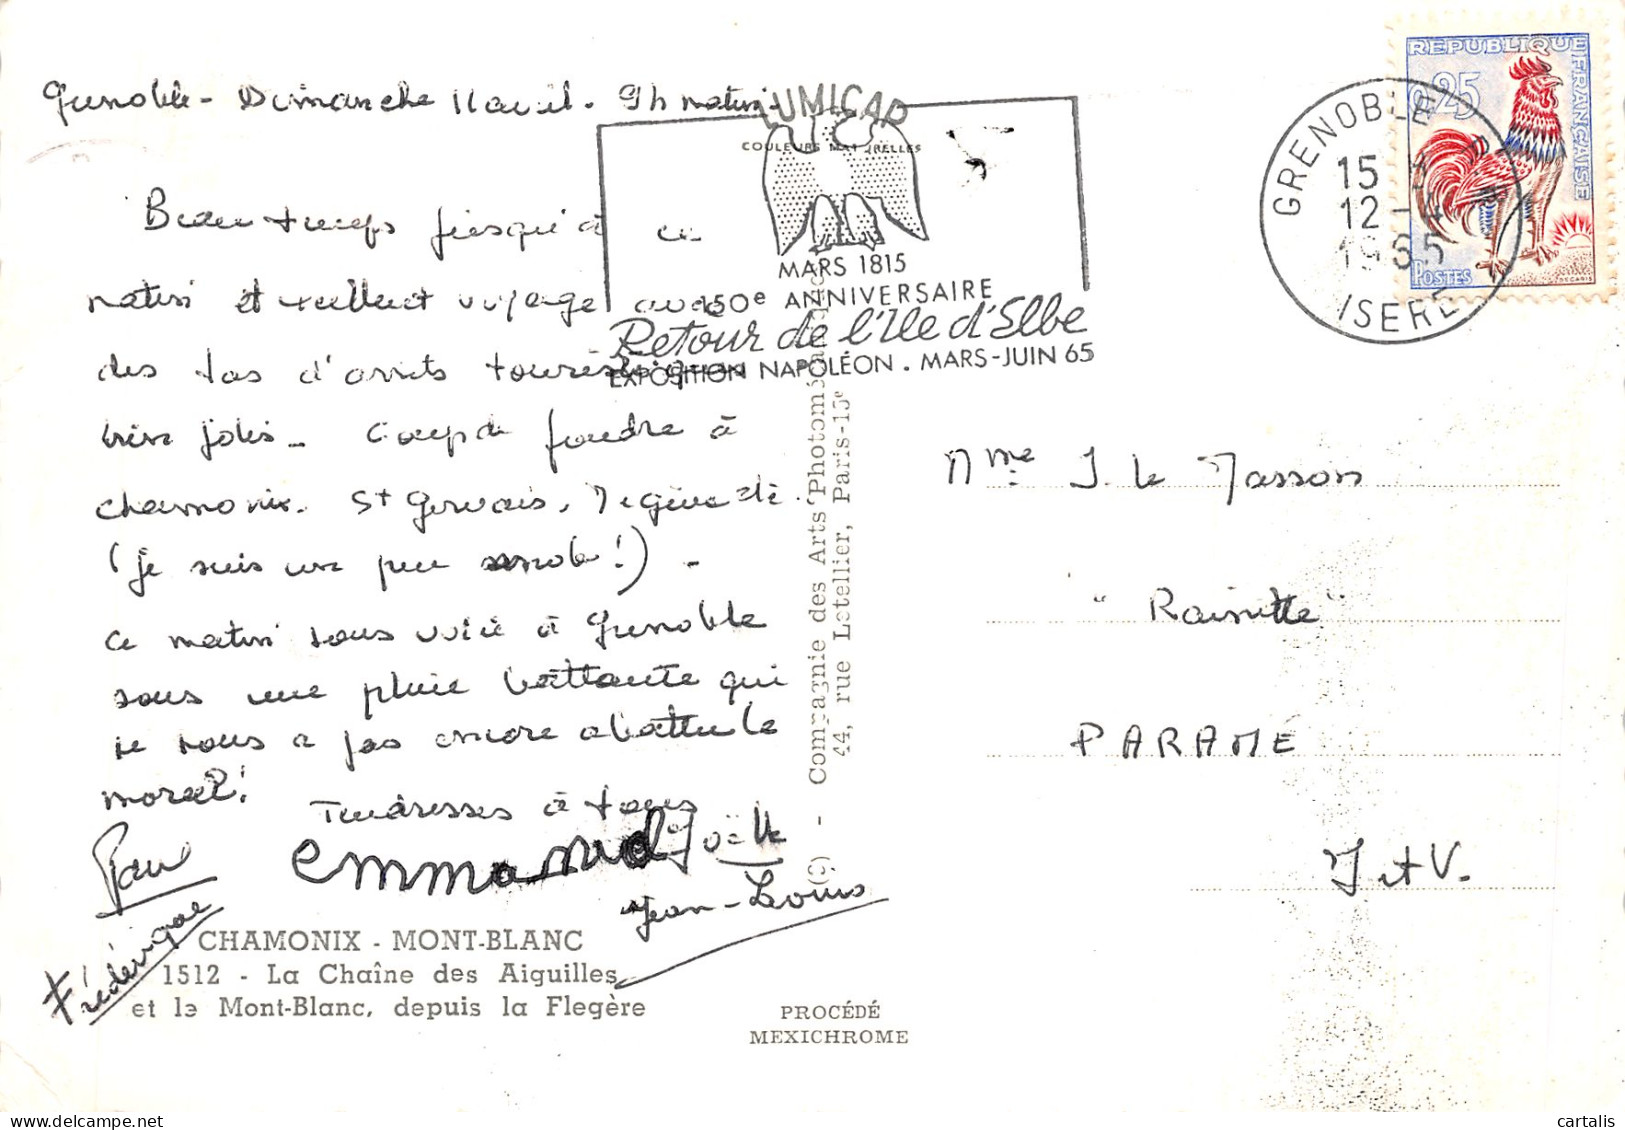 Grenoble - Dimanche 11 avril. 9h matin.
Beau temps jusqu'à ce
matin et excellent voyage avec
des tas d'arrêts touristiques
bien jolis - Coup de foudre à
Chamonix. St Gervais, Megève etc.
(je suis un peu snob!) -
Ce matin nous voici à Grenoble
sous une pluie battante qui
ne nous a pas encore abattu le
moral!
Tendresses à tous
emmanuel
Joëlle
Jean-Louis
Frédérique
CHAMONIX - MONT-BLANC
1512 - La Chaîne des Aiguilles
et le Mont-Blanc, depuis la Flegère
LUMICAP
COULEURS NATURELLES
MARS 1815
150e ANNIVERSAIRE
Retour de l'Ile d'Elbe
EXPOSITION NAPOLÉON . MARS-JUIN 65
(C) - Compagnie des Arts Photomécaniques
44, rue Letellier, Paris-15e
PROCÉDÉ
MEXICHROME
GRENOBLE
15 H
12-4
1965
ISERE
REPUBLIQUE FRANÇAISE
0,25
POSTES
DECARIS
Mme J. le Masson
"Rainette"
PARAMÉ
I et V.
cartalis